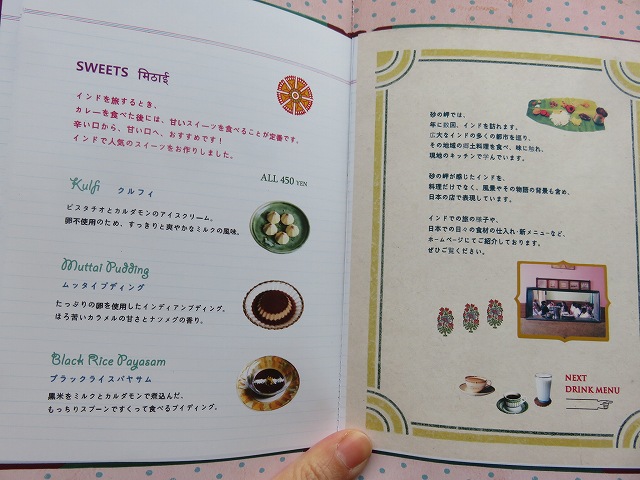 SWEETS मिठाई
インドを旅するとき、
カレーを食べた後には、甘いスイーツを食べることが定番です。
辛い口から、甘い口へ、おすすめです！
インドで人気のスイーツをお作りしました。
ALL 450 YEN
Kulfi クルフィ
ピスタチオとカルダモンのアイスクリーム。
卵不使用のため、すっきりと爽やかなミルクの風味。
Muttai Pudding
ムッタイプディング
たっぷりの卵を使用したインディアンプディング。
ほろ苦いカラメルの甘さとナツメグの香り。
Black Rice Payasam
ブラックライスパヤサム
黒米をミルクとカルダモンで煮込んだ、
もっちりスプーンですくって食べるプイディング。
砂の岬では、
年に数回、インドを訪れます。
広大なインドの多くの都市を巡り、
その地域の郷土料理を食べ、味に触れ、
現地のキッチンで学んでいます。
砂の岬が感じたインドを、
料理だけでなく、風景やその物語の背景も含め、
日本の店で表現しています。
インドでの旅の様子や、
日本での日々の食材の仕入れ・新メニューなど、
ホームページにてご紹介しております。
ぜひご覧ください。
NEXT
DRINK MENU